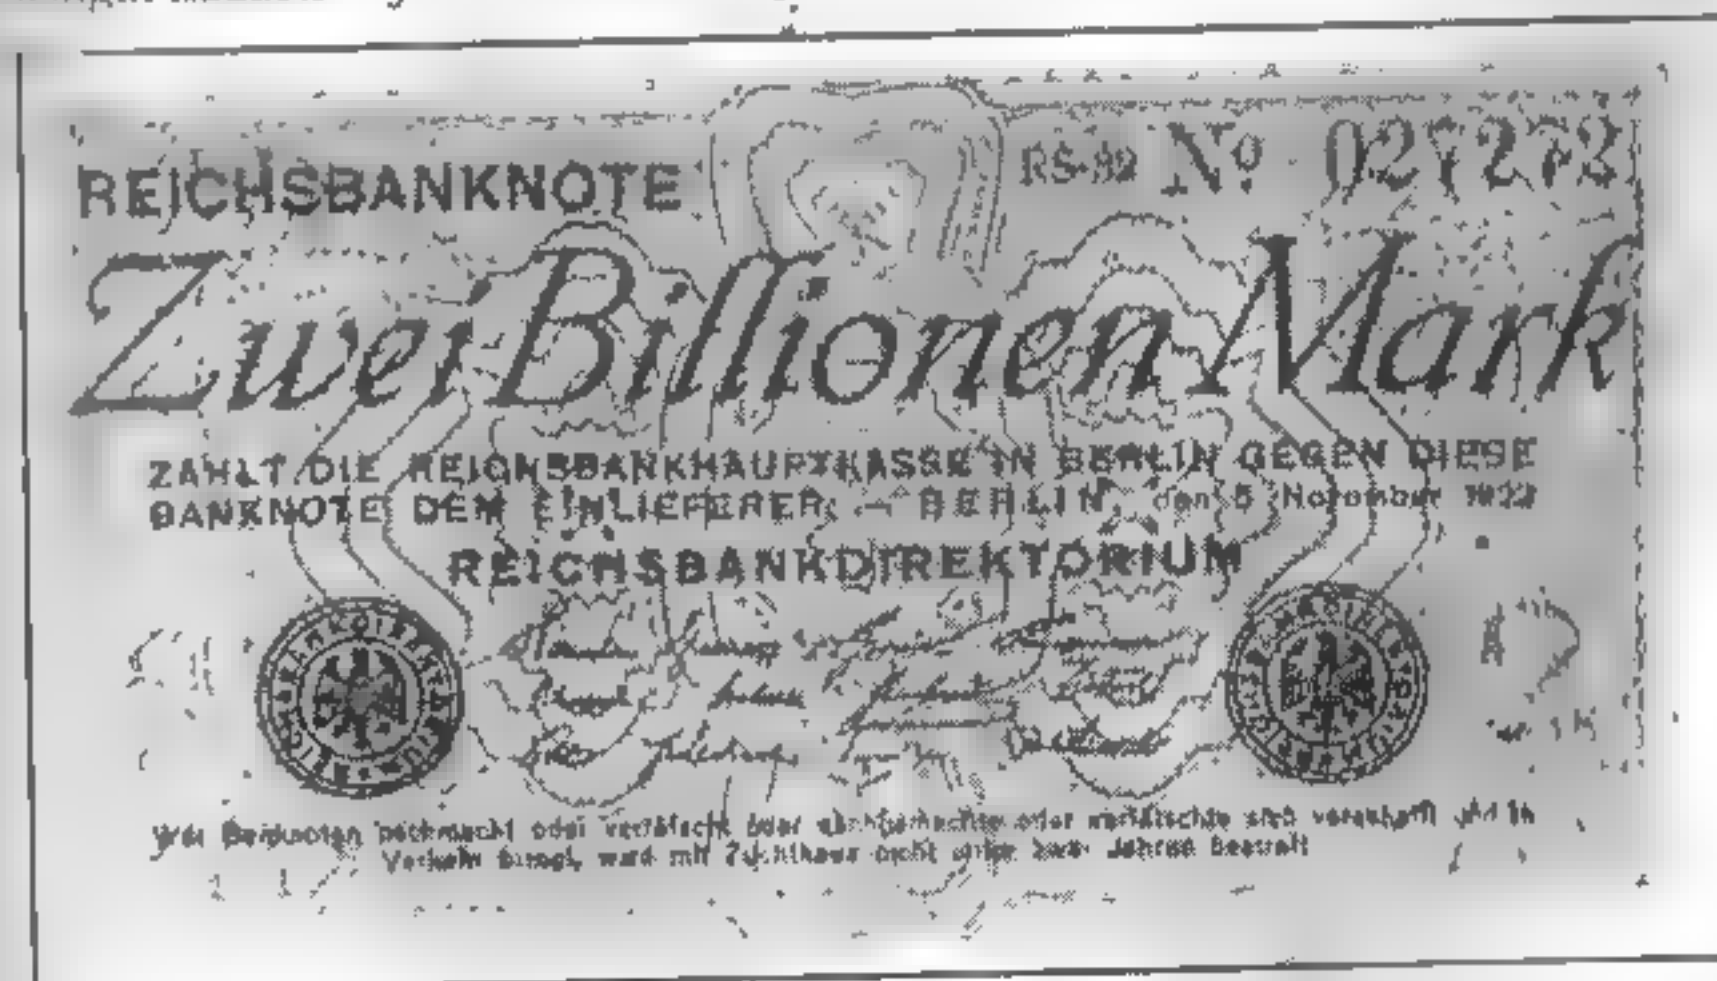 REICHSBANKNOTE
RS-92 No 027273
Zwei Billionen Mark
ZAHLT DIE REICHSBANKHAUPTKASSE IN BERLIN GEGEN DIESE
BANKNOTE DEM EINLIEFERER. – BERLIN, den 5 November
REICHSBANKDIREKTORIUM
REICHSBANKDIREKTORIUM
REICHSBANKDIREKTORIUM
Wer Banknoten nachmacht oder verfälscht oder nachgemachte oder verfälschte sich verschafft und in
Verkehr bringt, wird mit Zuchthaus nicht unter zwei Jahren bestraft